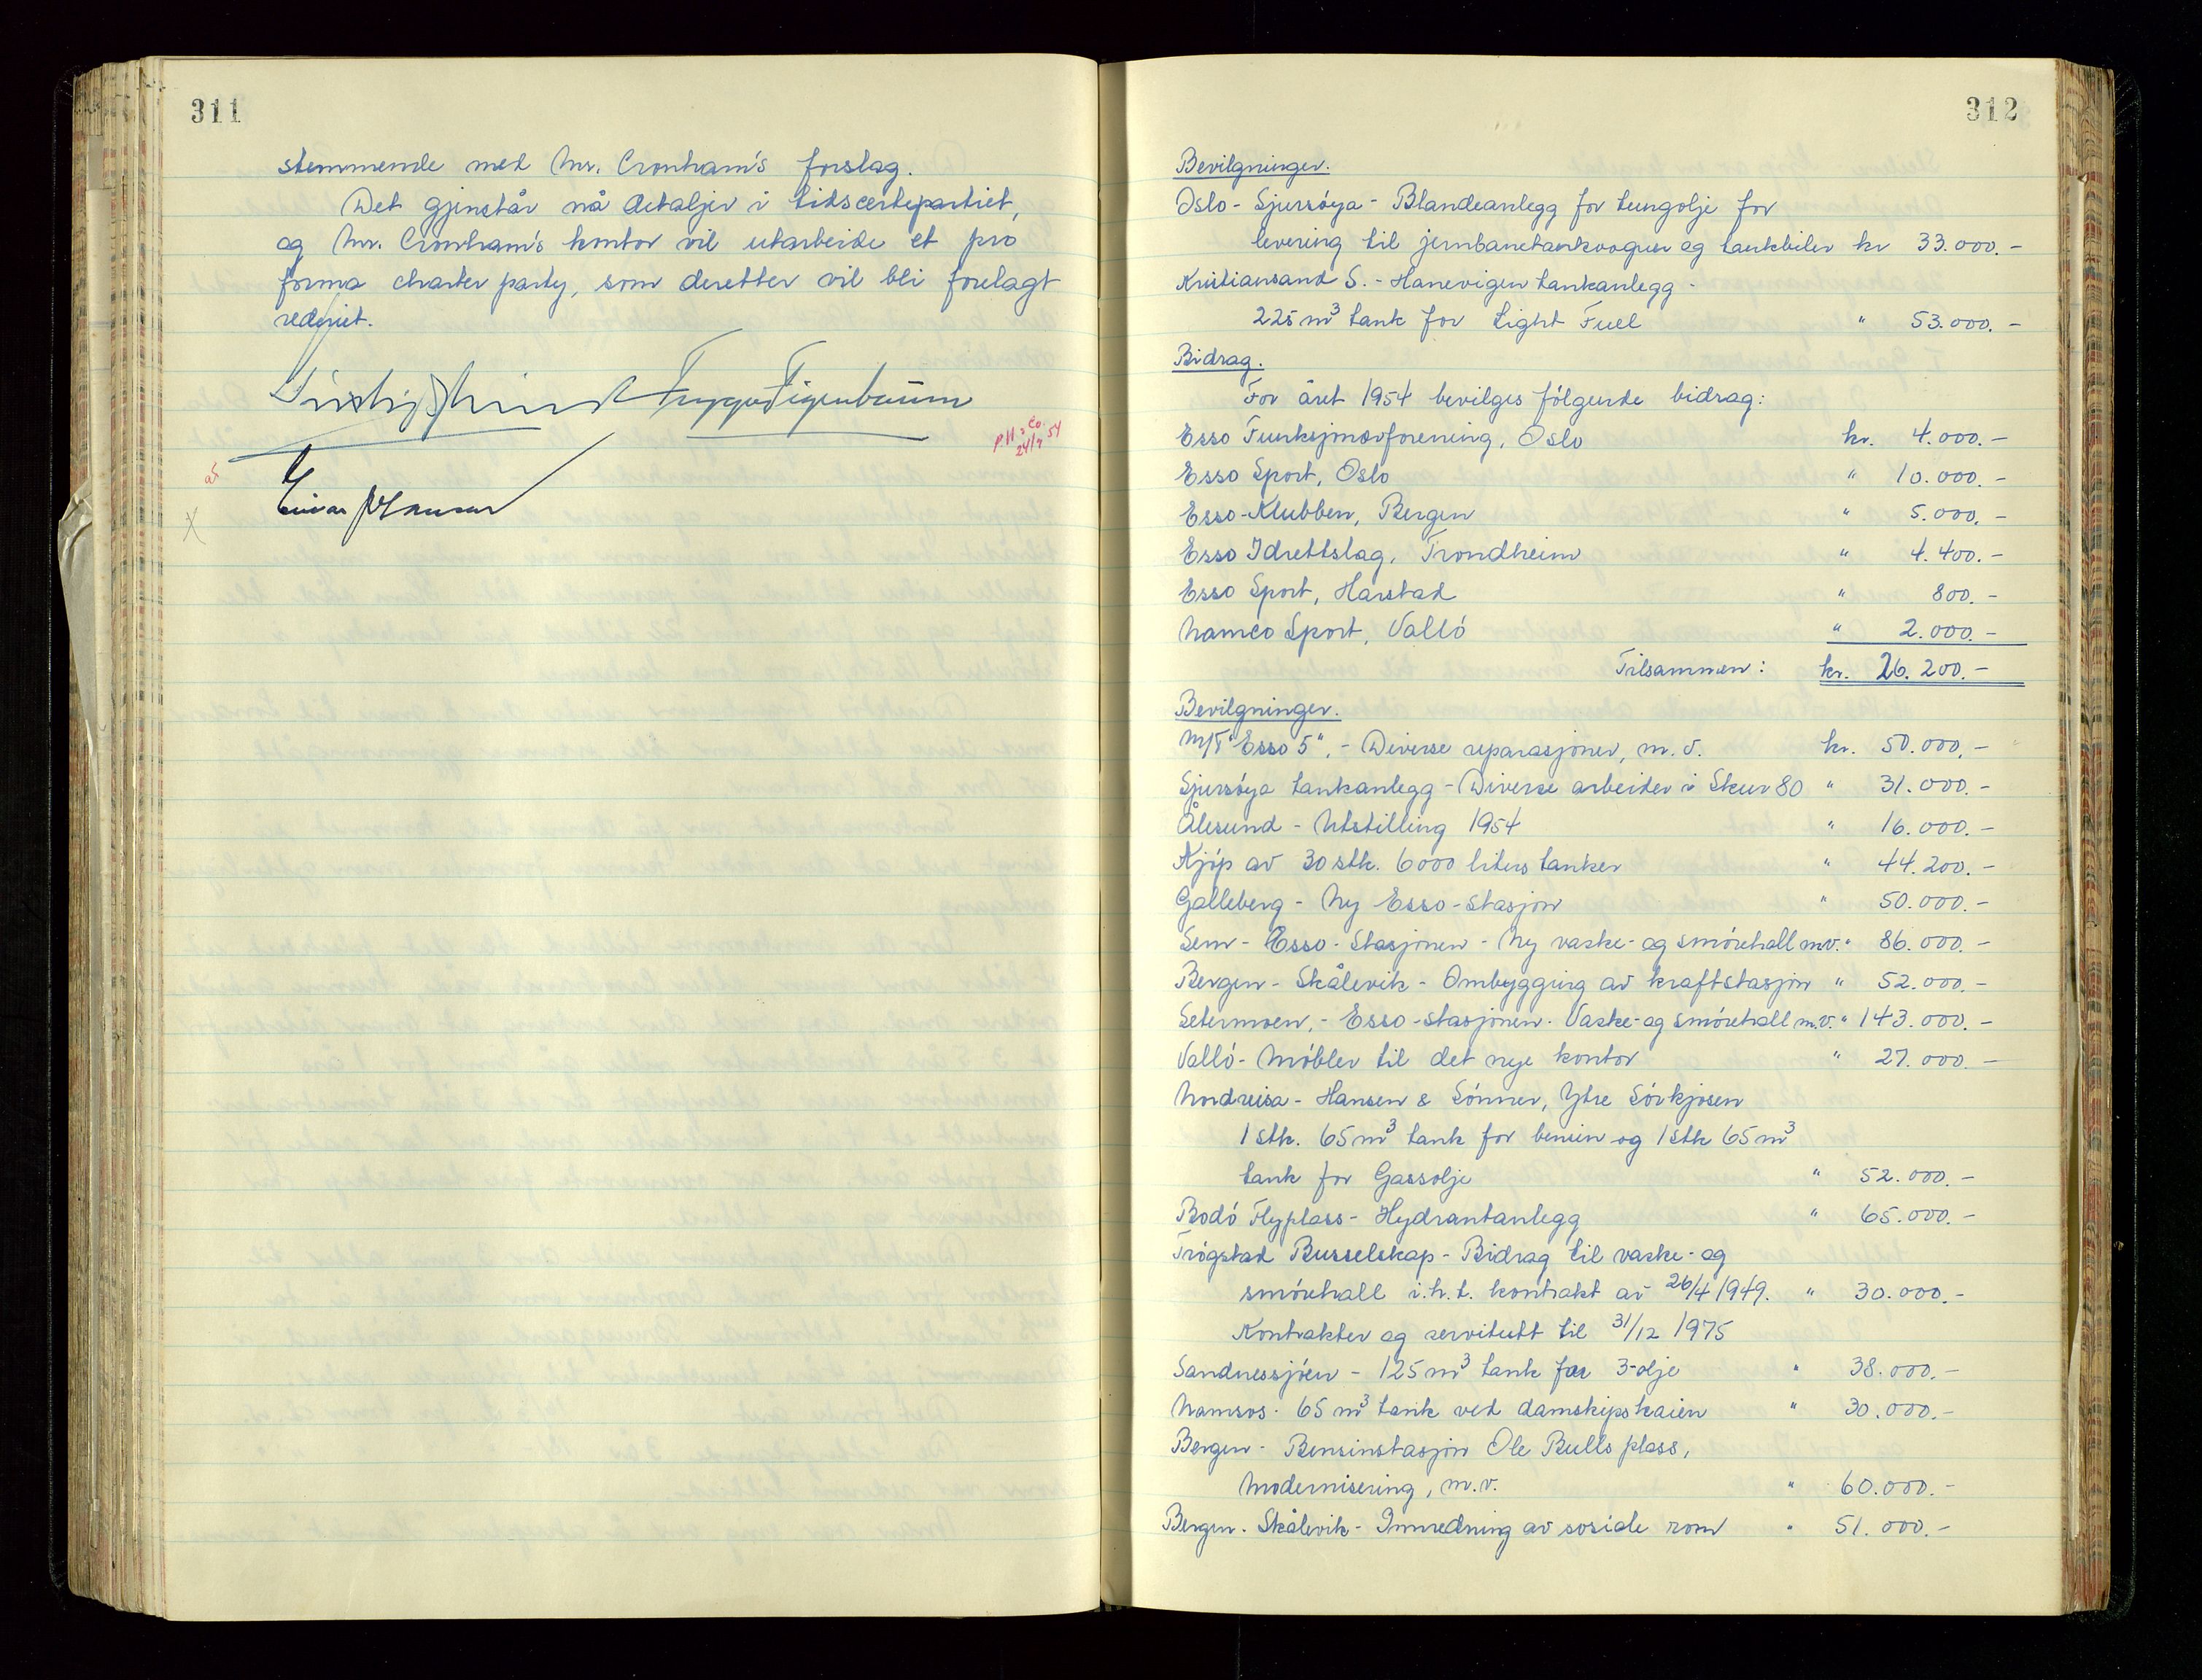 311
stemmende med Mr. Cronham's forslag.
Det gjenstår nå detaljer i tidscertepartiet,
og Mr. Cronham's kontor vil utarbeide et pro
forma charter party, som deretter vil bli forelagt
rederiet.
24/9 54
312
Bevilgninger.
Oslo - Sjursøya - Blandeanlegg for tungolje for
levering til jernbanetankvogner og tankbiler kr 33.000.-
Kristiansand S. - Hanevigen tankanlegg -
225 m³ tank for Light Fuel " 53.000.-
Bidrag.
For året 1954 bevilges følgende bidrag:
Esso Funksjonærforening, Oslo kr. 4.000.-
Esso Sport, Oslo " 10.000.-
Esso-Klubben, Bergen " 5.000.-
Esso Idrettslag, Trondheim " 4.400.-
Esso Sport, Harstad " 800.-
Namco Sport, Valló " 2.000.-
Tilsammen: kr. 26.200.-
Bevilgninger.
M/T "Esso 5", - Diverse reparasjoner, m.v. kr. 50.000.-
Sjursøya tankanlegg - Diverse arbeider i Skur 80 " 31.000.-
Ålesund - Utstilling 1954 " 16.000.-
Kjøp av 30 stk. 6000 liters tanker " 44.200.-
Galleberg - Ny Esso-stasjon " 50.000.-
Sem - Esso-Stasjonen - Ny vaske- og smørehall m.v. " 86.000.-
Bergen - Skålevik - Ombygging av kraftstasjon " 52.000.-
Setermoen, - Esso-stasjonen - Vaske- og smørehall m.v. " 143.000.-
Valló - Møbler til det nye kontor " 27.000.-
Nordreisa - Hansen & Sønner, Ytre Sørkjosen
1 stk. 65 m³ tank for bensin og 1 stk 65 m³
tank for Gassolje " 52.000.-
Bodó Flyplass - Hydrantanlegg " 65.000.-
Trøgstad Busselskap - Bidrag til vaske- og
smørehall i.h.t. kontrakt av 26/4 1949. " 30.000.-
Kontrakter og servitutt til 31/12 1975
Sandnessjøen - 125 m³ tank for 3-olje " 38.000.-
Namsos - 65 m³ tank ved damskipskaien " 30.000.-
Bergen - Bensinstasjon Ole Bulls plass,
Modernisering, m.v. " 60.000.-
Bergen - Skålevik - Innredning av sosiale rom " 51.000.-